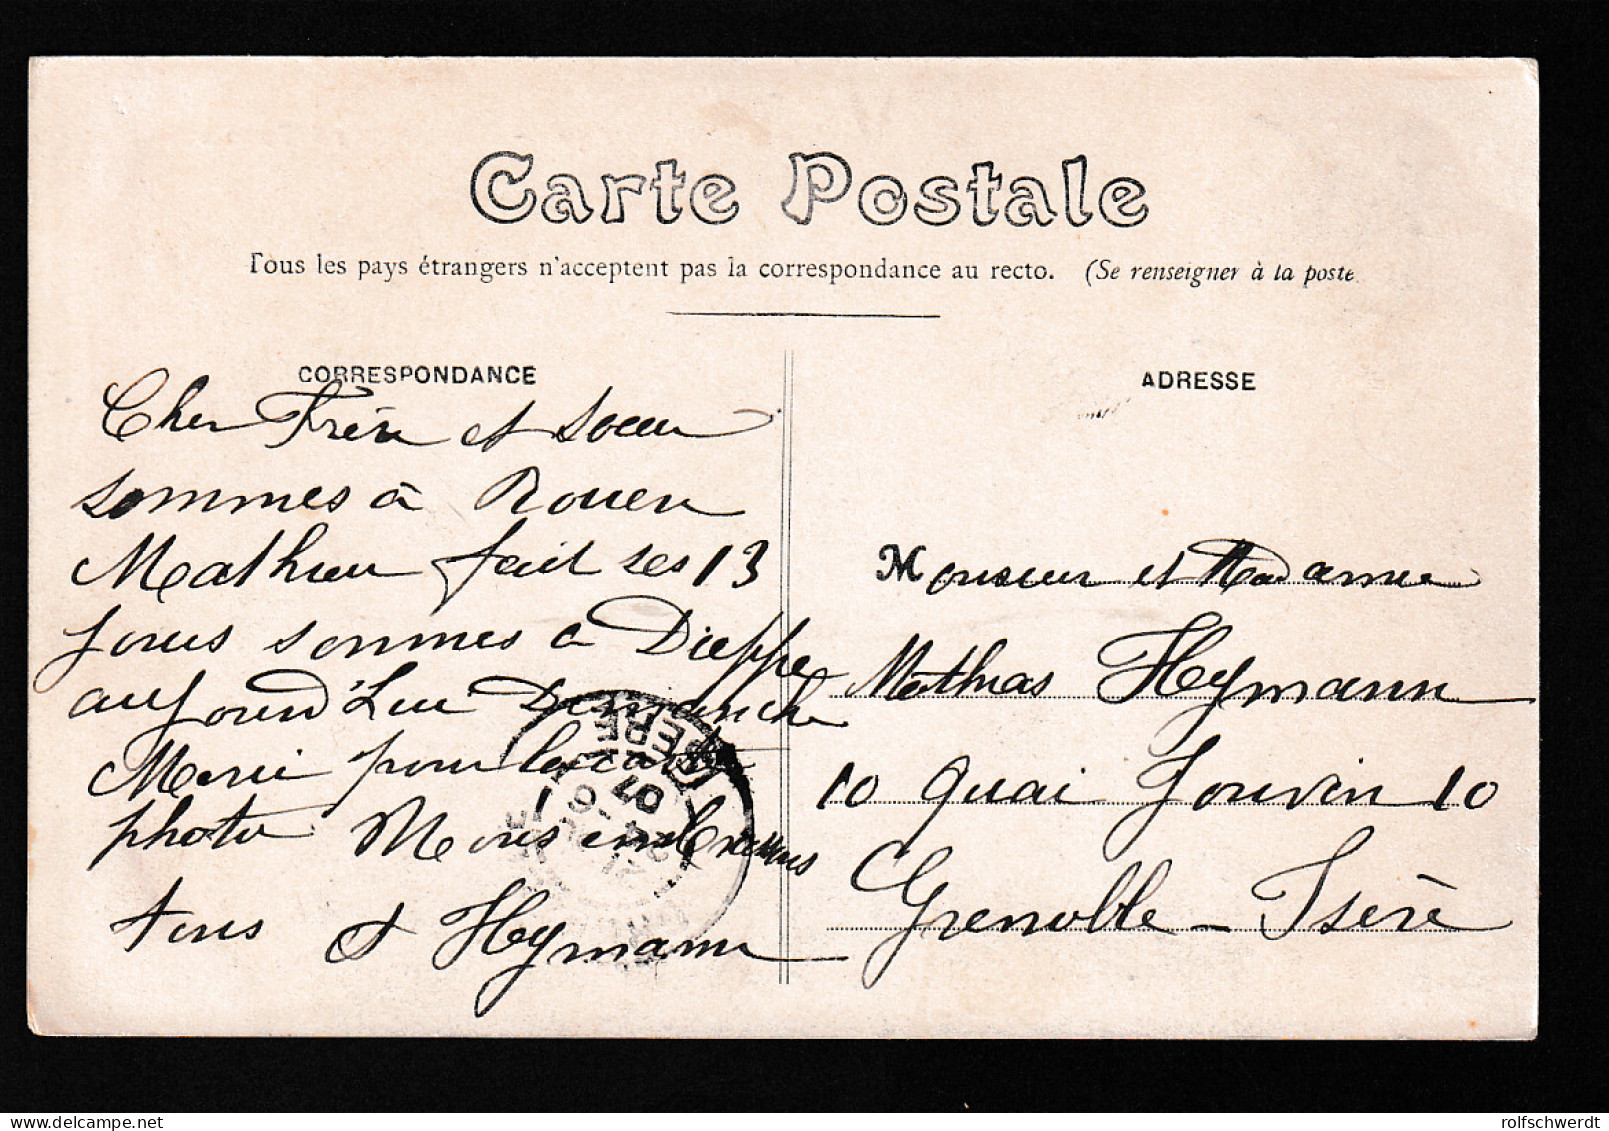 Carte Postale
Tous les pays étrangers n'acceptent pas la correspondance au recto. (Se renseigner à la poste
CORRESPONDANCE
ADRESSE
Cher Frère et Soeur
sommes à Rouen
Mathieu fait ses 13
jours sommes a Dieppe
aujourd'hui Dimanche
Merci pour la carte
photo Nous embrassons
tous J Heymann
Monsieur et Madame
Mathias Heymann
10 Quai Jouvin 10
Grenoble - Isère
ISERE
07
rolfschwerdt